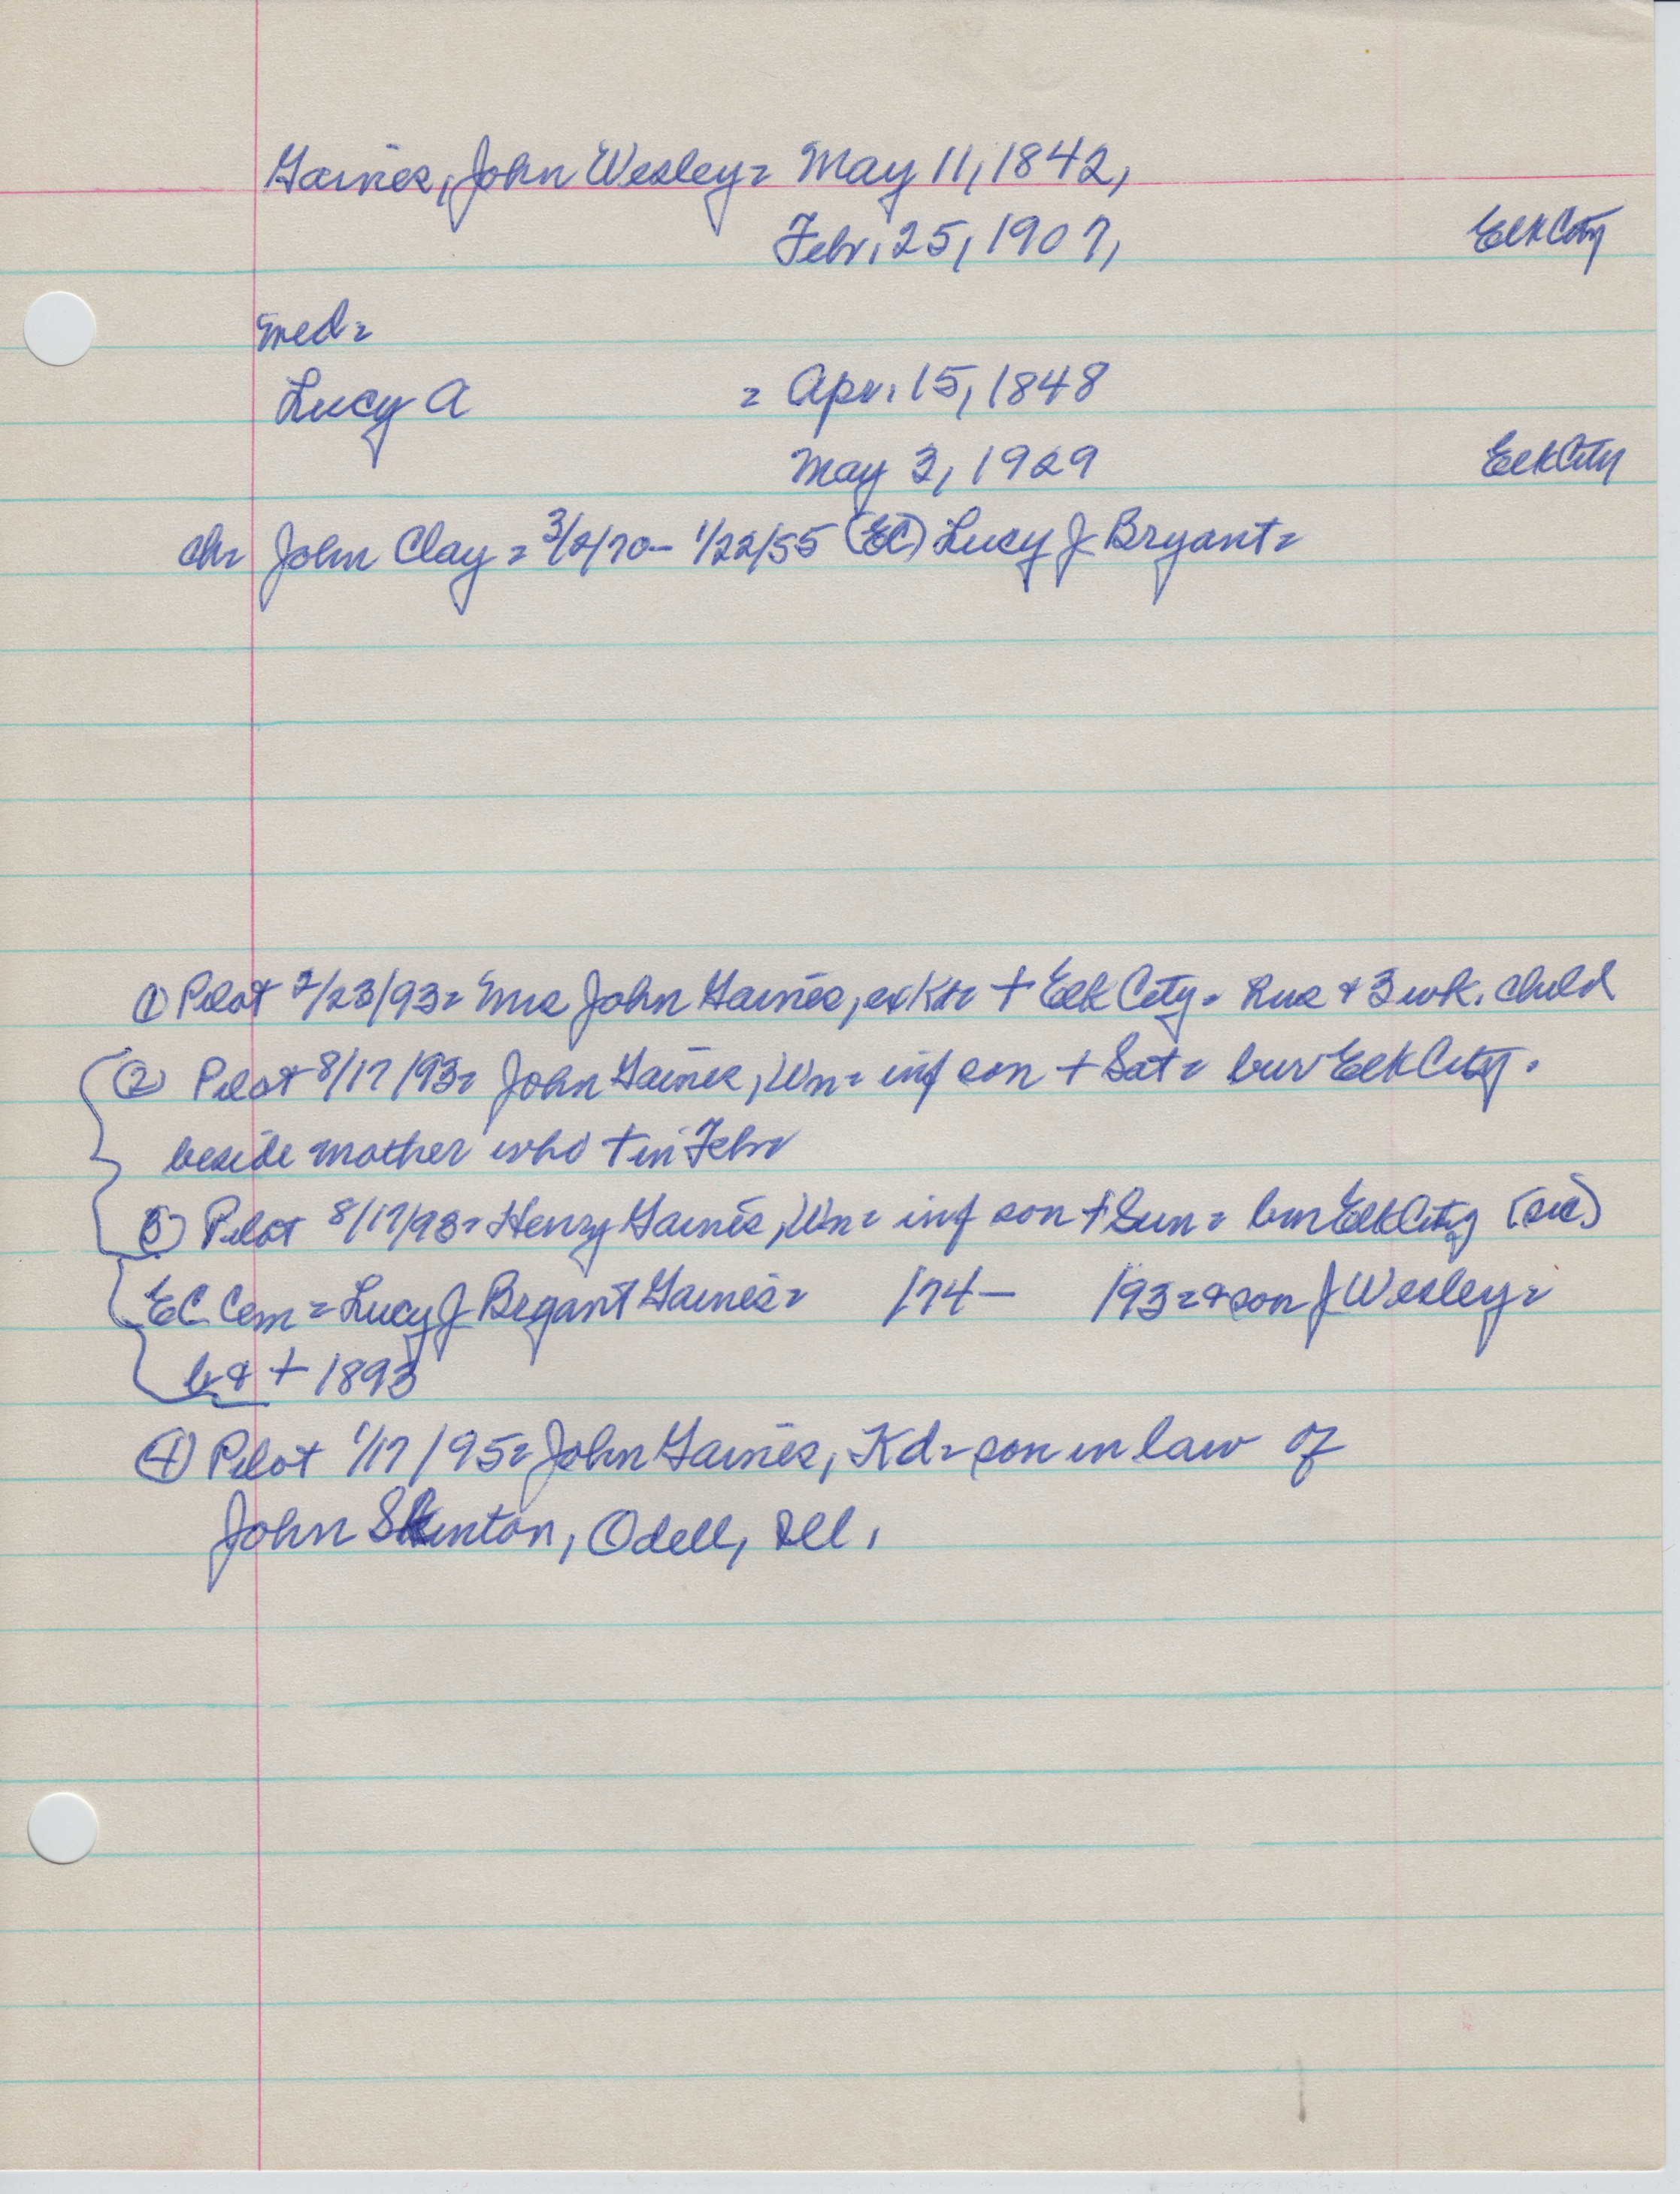 Gaines, John Wesley = May 11, 1842,
Febr. 25, 1907, Elk City
med =
Lucy A = Apr. 15, 1848
May 3, 1929 Elk City
ch = John Clay = 3/2/70 - 1/22/55 (EC) Lucy J Bryant =
① Pilot 2/23/93 = Mrs John Gaines, ex + Elk City = hus & 3 wk. child
② Pilot 8/17/93 = John Gaines, Wn = inf son + Sat = bur Elk City.
beside mother who + in Febr
③ Pilot 8/17/93 = Henry Gaines, Wn = inf son + Sun = bur Elk City (sic)
EC Cem = Lucy J Bryant Gaines = /74 - /93 = & son J Wesley =
b & + 1893
④ Pilot 1/17/95 = John Gaines, Kd = son in law of
John Skinton, Odell, Ill.